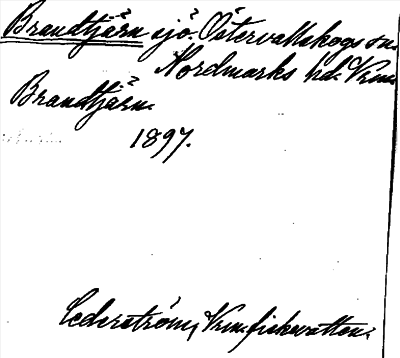 Brandtjärn sjö. Östervallskogs sn.
Nordmarks hd. Vrm.
Brandtjärn.
1897.
Cederström, Vrm. fiskevatten.